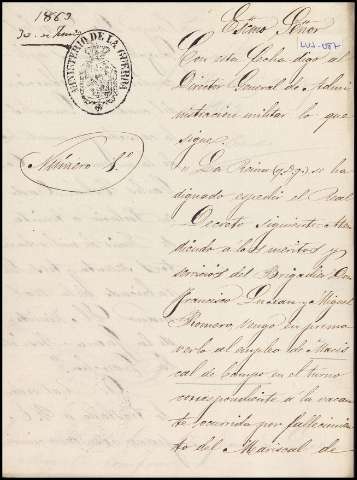 1863
30 de Junio
MINISTERIO DE LA GUERRA
Número 1º
Exmo Señor
Con esta fecha digo al
Director General de Admi-
nistracion militar lo que
sigue.
" La Reina (q. D. g.) se ha
dignado espedir el Real
Decreto siguiente = Aten
diendo a los meritos y
servicios del Brigadier Don
Francisco y Miguel
Romero, vengo en promo
verle al empleo de Maris
cal de Campo en el turno
correspondiente a la vacan
te ocurrida por fallecimien
to del Mariscal de